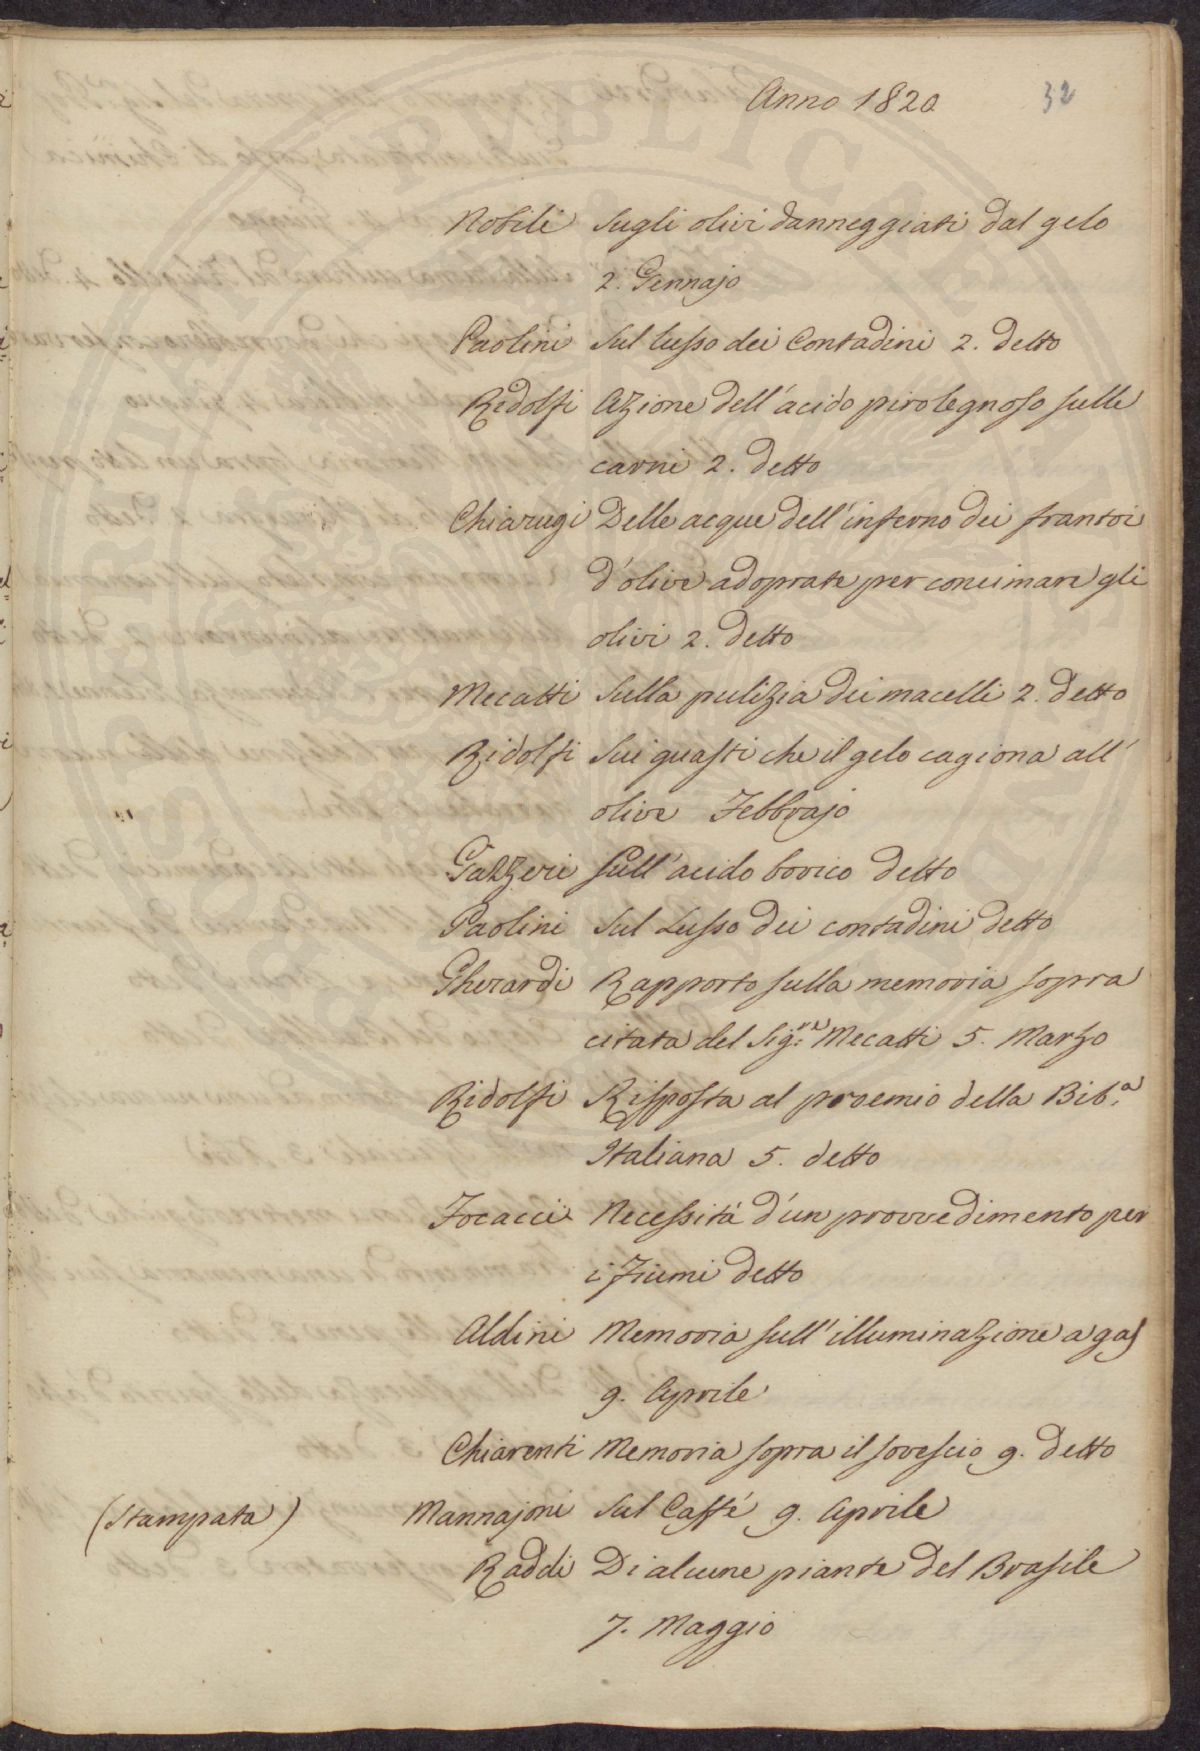 Anno 1820 32
Nobili Sugli olivi danneggiati dal gelo
2. Gennajo
Paolini Sul lusso dei Contadini 2. detto
Ridolfi Azione dell'acido pirolegnoso sulle
carni 2. detto
Chiarugi Delle acque dell'inferno dei frantoi
d'olive adoprate per concimare gli
olivi 2. detto
Mecatti Sulla pulizia dei macelli 2. detto
Ridolfi Sui guasti che il gelo cagiona all'
olive Febbrajo
Gazzeri Sull'acido borico detto
Paolini Sul Lusso dei contadini detto
Gherardi Rapporto sulla memoria sopra
citata del Sig.r Mecatti 5. Marzo
Ridolfi Risposta al proemio della Bib.a
Italiana 5. detto
Focacci Necessità d'un provvedimento per
i Fiumi detto
Aldini Memoria sull'illuminazione a gas
9. Aprile
Chiarenti Memoria sopra il sovescio 9. detto
(Stampata) Mannajoni Sul Caffé 9. Aprile
Raddi Di alcune piante del Brasile
7. Maggio